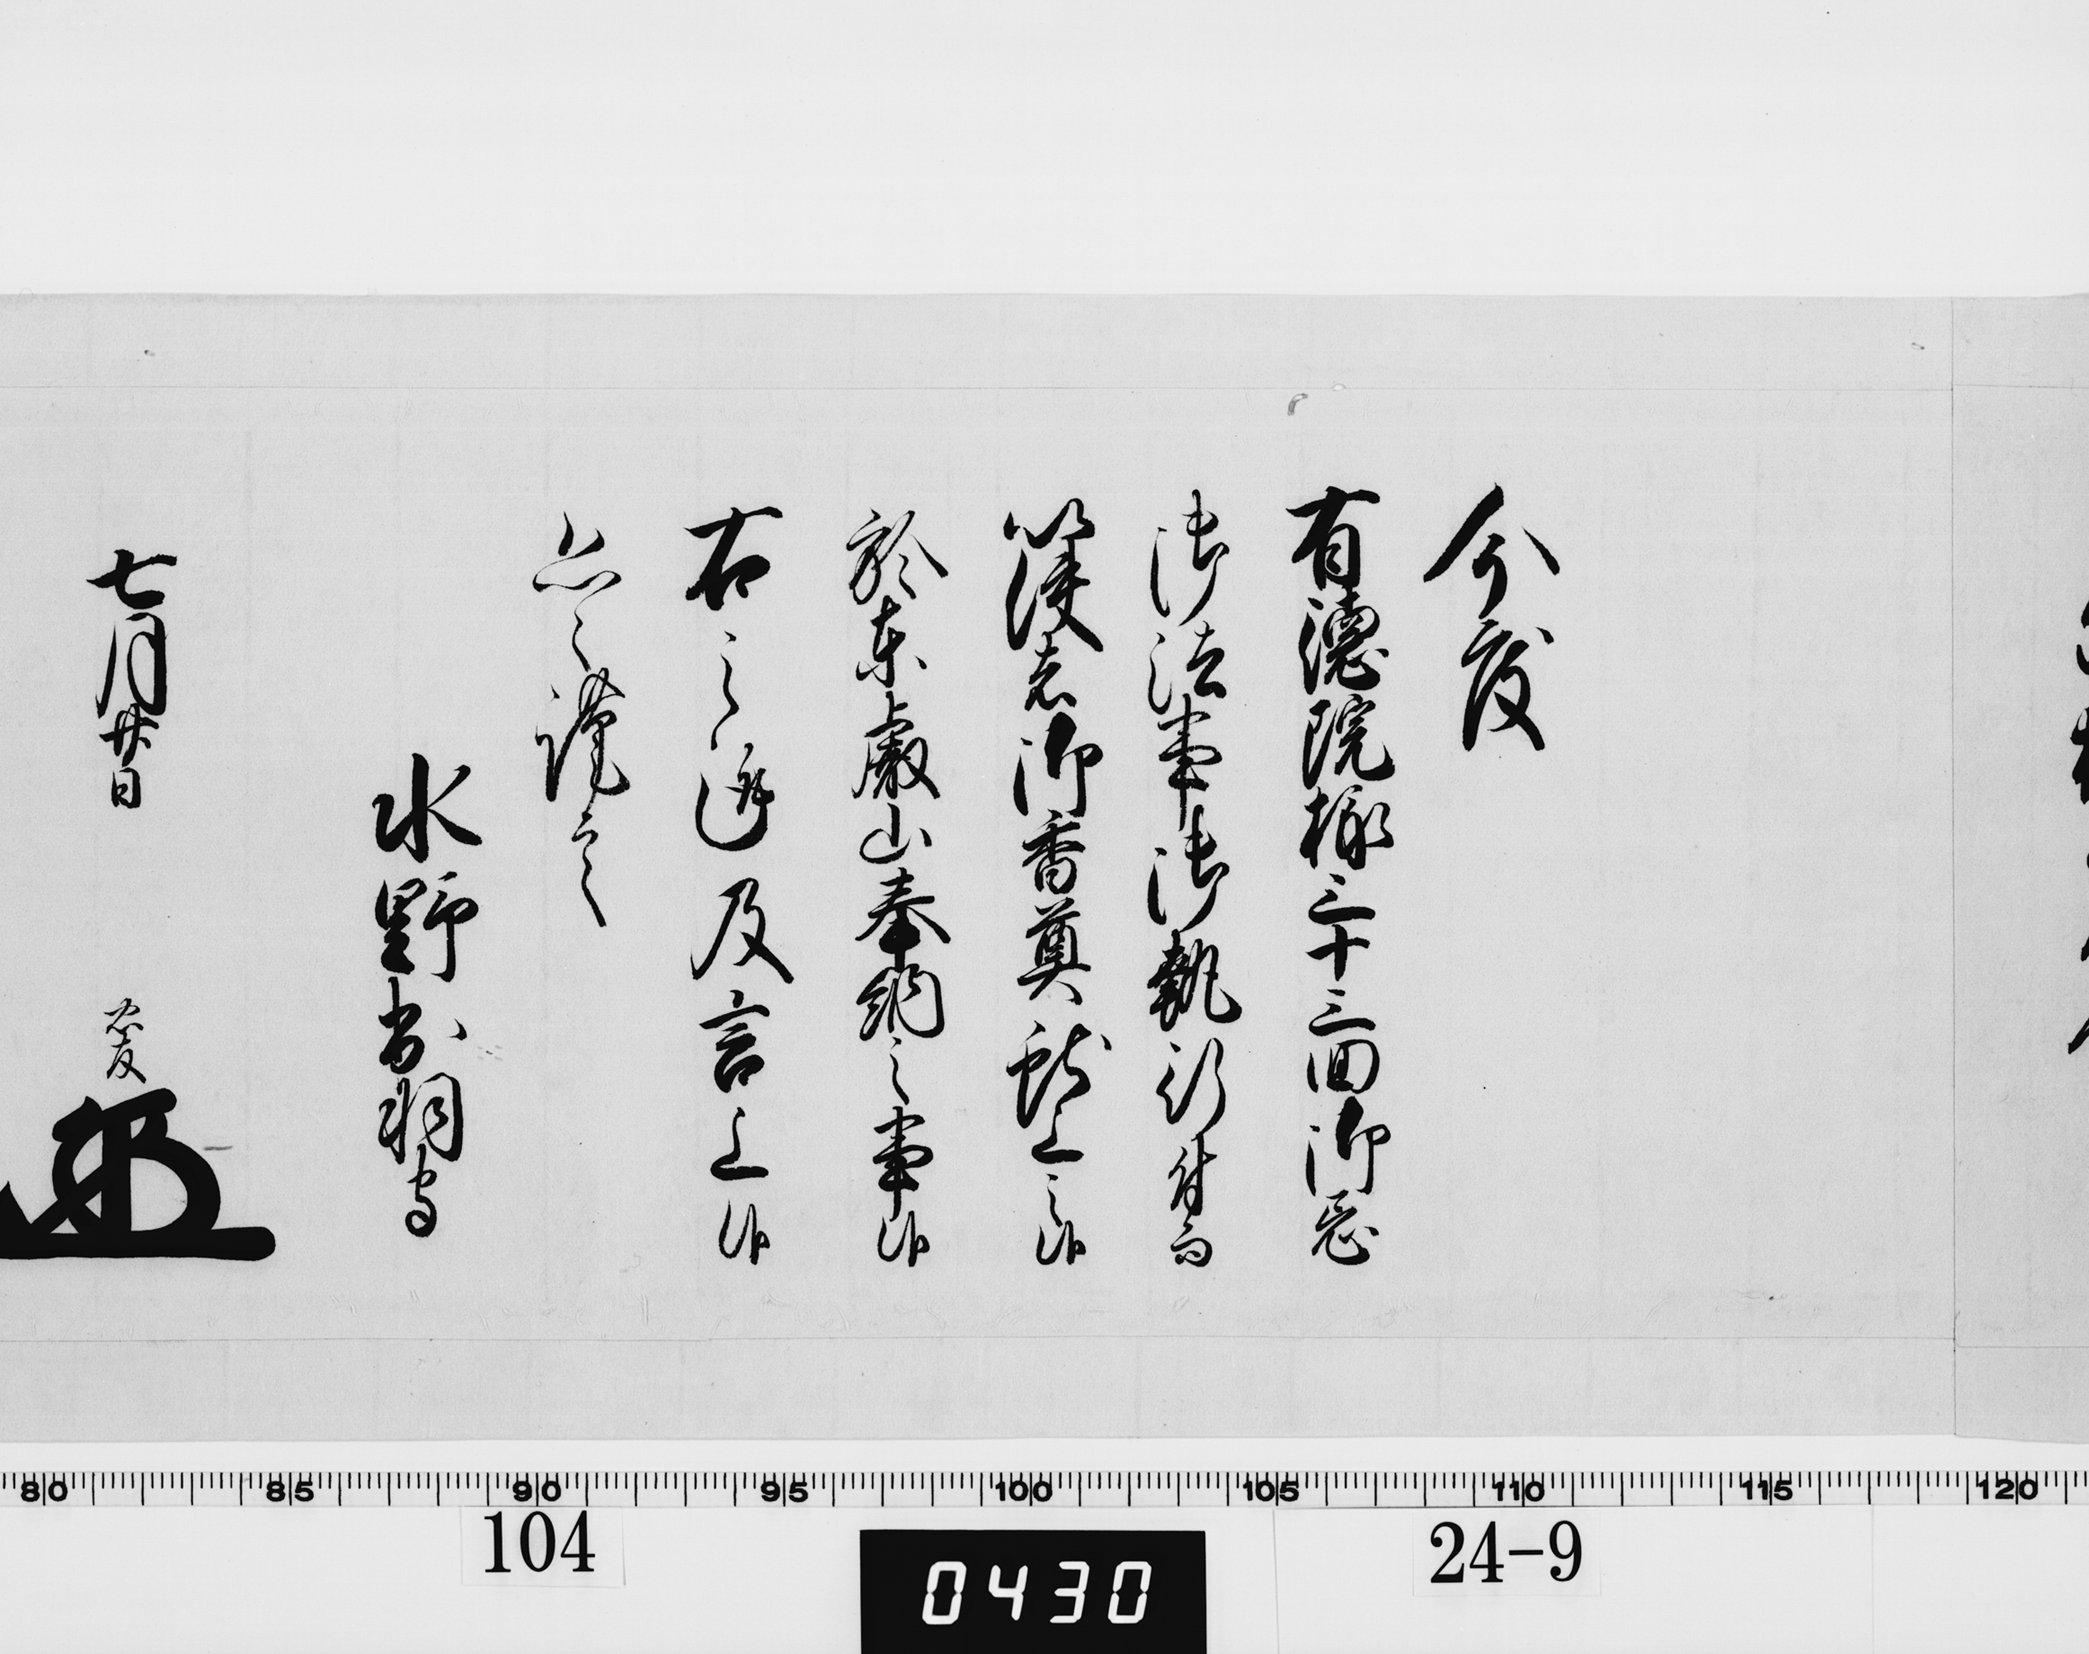 今度
有徳院様三十三回御忌
御法事御執行付而
従是御香奠献上之候
於東叡山奉納之事候
右之趣及言上候
恐々謹言
水野出羽守
七月廿日
忠友
80 85 90 95 100 105 110 115 120
104
0430
24-9